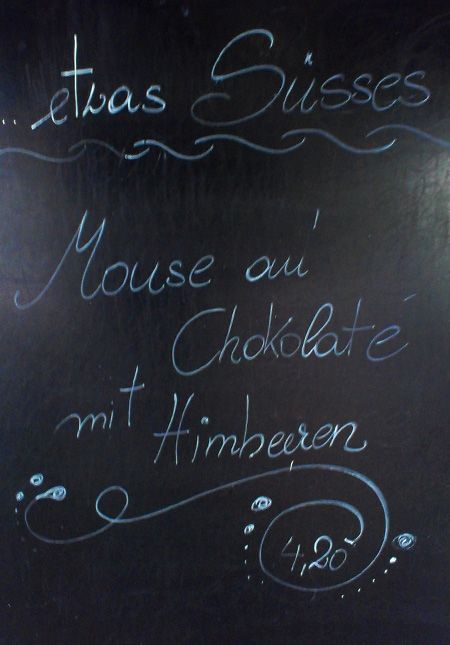 ...etwas Süsses
Mouse au'
Chokolaté
mit Himbeeren
4,20